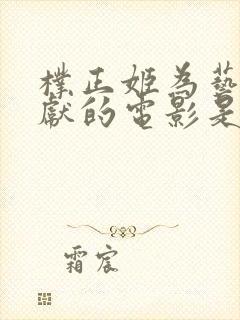 樸正姬為藝
獻的電影是
霜宸